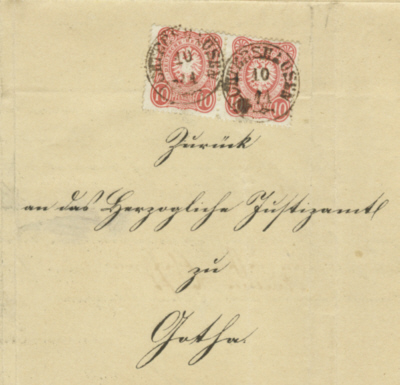 10 10
10 10 10 10
Zurück
an das Herzogliche Justizamt
zu
Gotha.